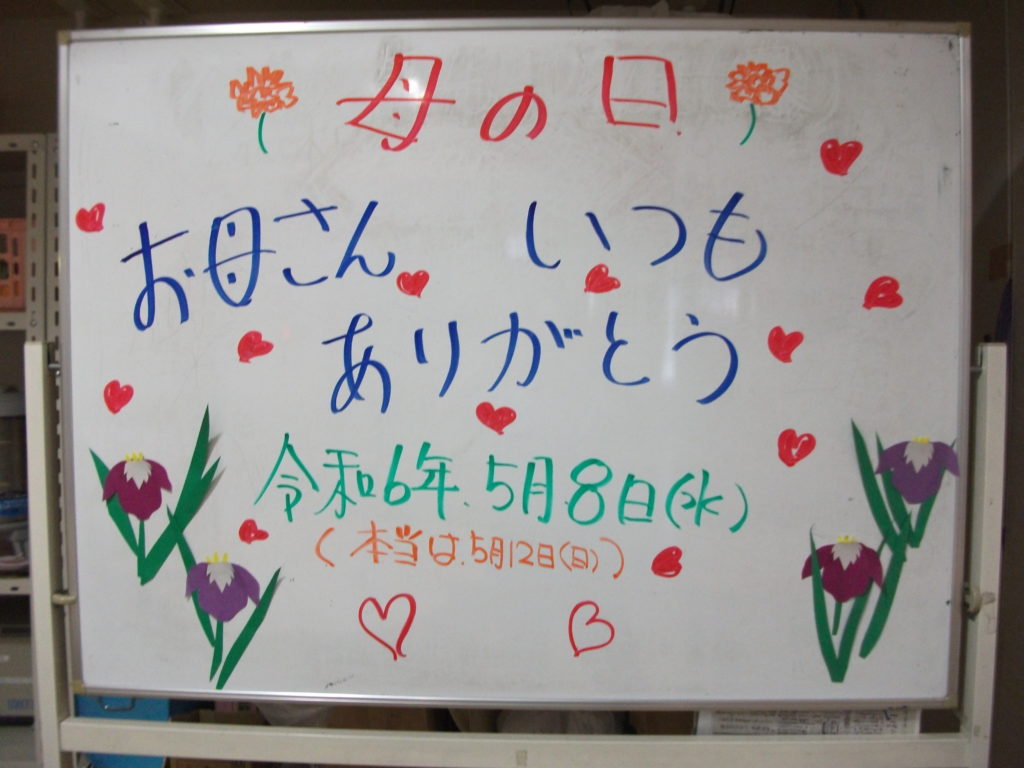 母の日
お母さん いつも
ありがとう
令和6年.5月.8日(水)
(本当は.5月12日(日))